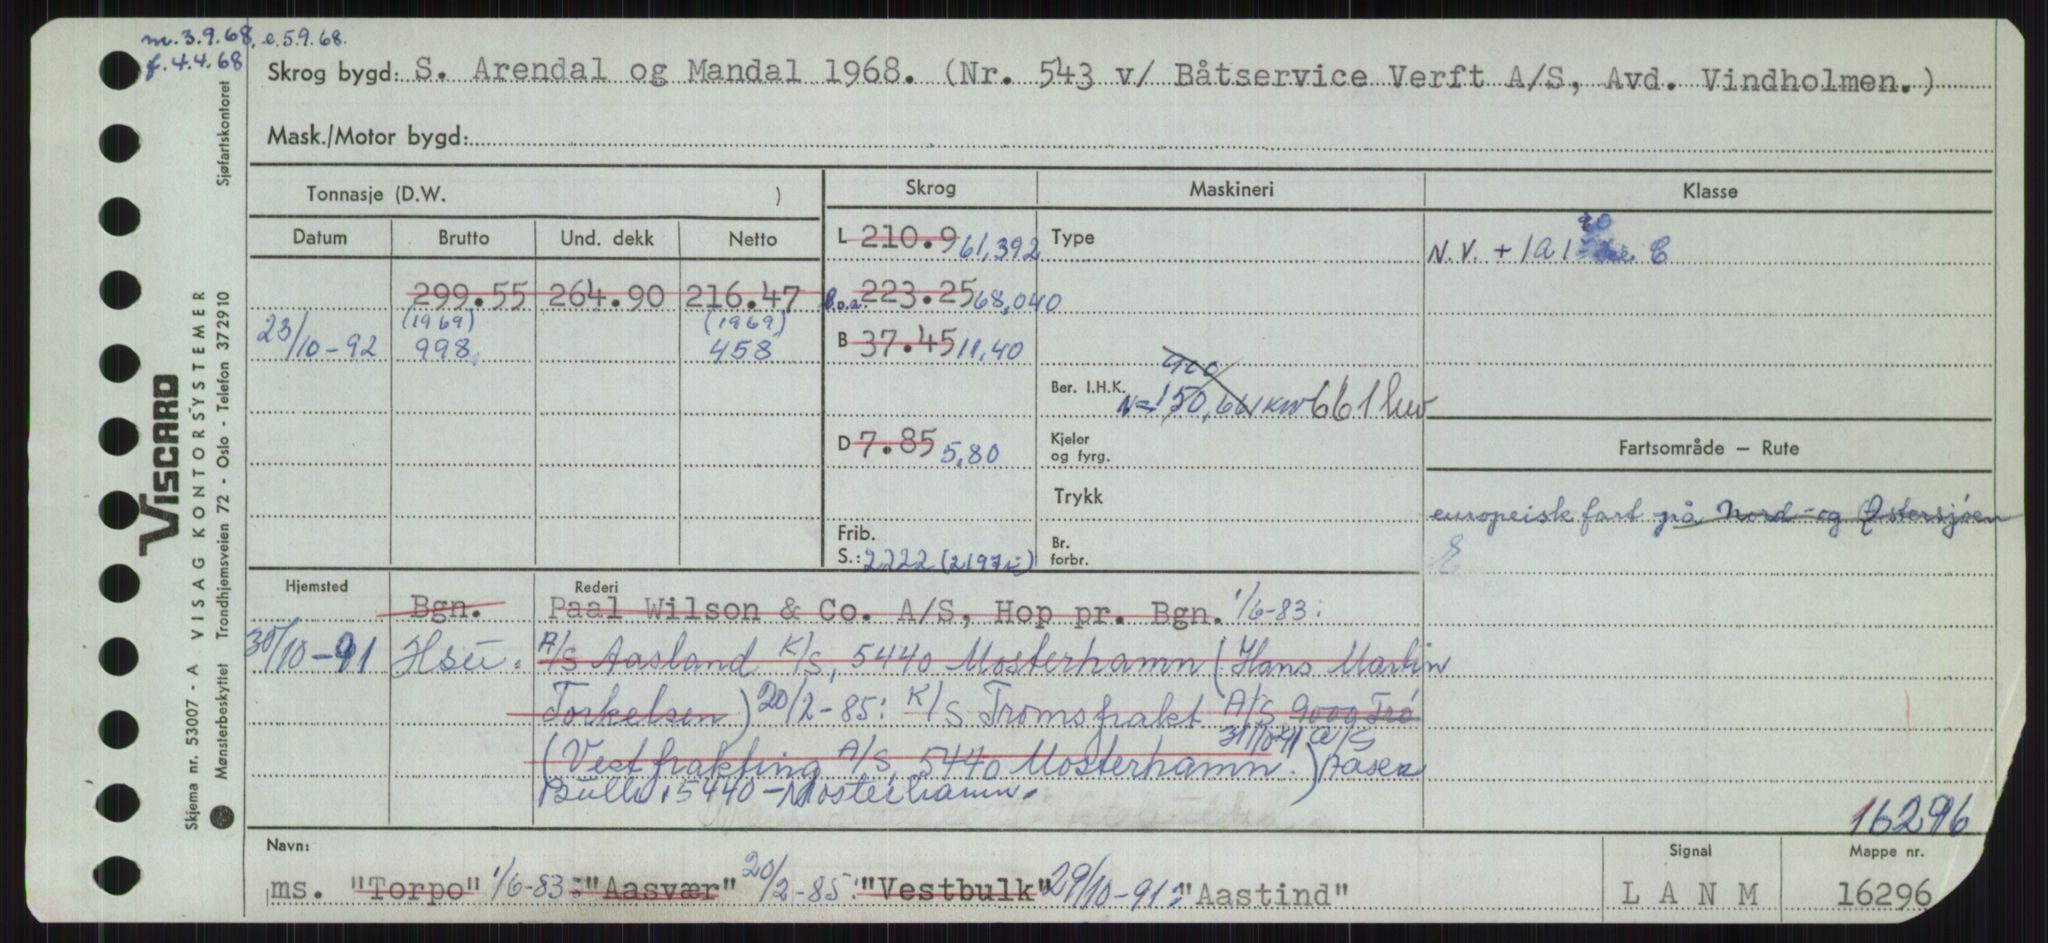 m. 3.9.68, e. 5.9.68.
f. 4.4.68
Skrog bygd: S. Arendal og Mandal 1968. (Nr. 543 v/ Båtservice Verft A/S, Avd. Vindholmen.)
Mask./Motor bygd:
Tonnasje (D.W. )
Skrog
Maskineri
Klasse
Datum
Brutto
Und. dekk
Netto
L 210.9 61,392
Type
90
N.V. + 1A1 C
299.55 264.90 216.47
l.o.a. 223.25 68,040
(1969) (1969)
23/10-92 998. 458
B 37.45 11,40
900
Ber. I.H.K. N=150, 661 KW 661 kw
D 7.85 5,80
Kjeler og fyrg.
Fartsområde — Rute
Trykk
europeisk fart på Nord- og Østersjøen
E
Frib.
S.: 2222 (2197)
Br. forbr.
Hjemsted
Rederi
Bgn. Paal Wilson & Co. A/S, Hop pr. Bgn. 1/6-83:
30/10-91 A/S Aasland K/S, 5440 Mosterhamn (Hans Martin
Torkelsen) 20/2-85: K/S Tromsfrakt A/S, 9000 Trø
A/S
(Vestfrakting A/S, 5440 Mosterhamn.) Aasen
Bulk, 5440-Mosterhamn.
16296
Navn:
Signal
Mappe nr.
ms. "Torpo" 1/6-83: "Aasvær" 20/2-85: "Vestbulk" 29/10-91: "Aastind"
LANM
16296
Sjøfartskontoret
VISCARD
Skjema nr. 53007 - A VISAG KONTORSYSTEMER
Mønsterbeskyttet Trondhjemsveien 72 - Oslo - Telefon 372910